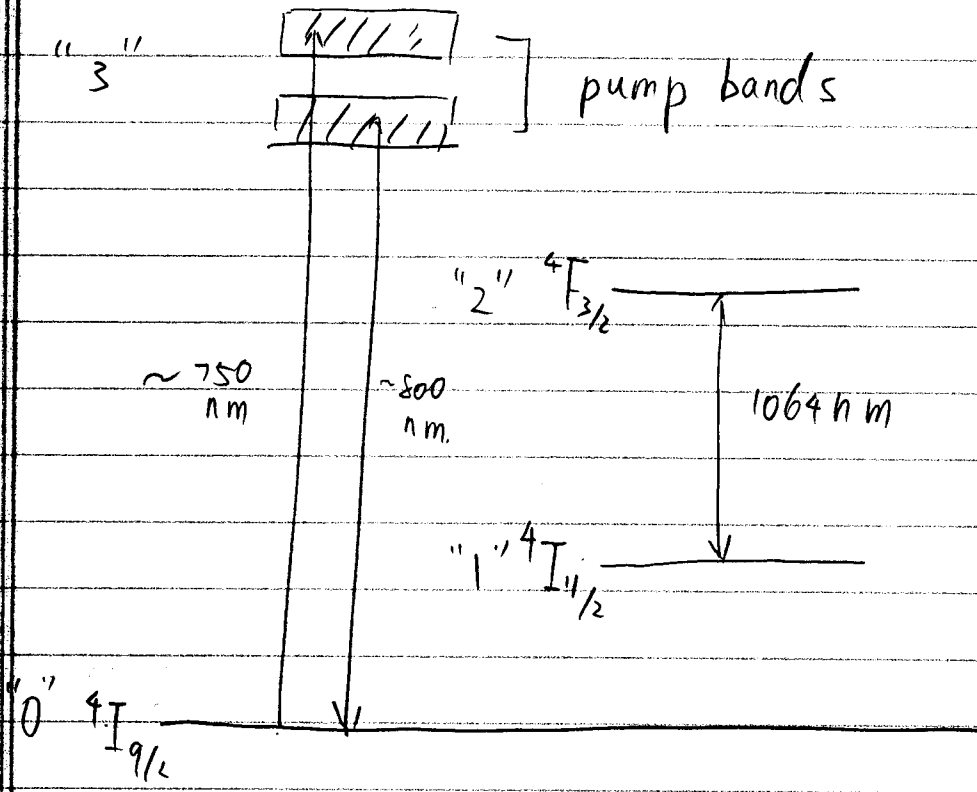 "3"
pump bands
"2" ⁴F₃/₂
~ 750
nm
~800
nm.
1064 nm
"1" ⁴I₁₁/₂
"0" ⁴I₉/₂